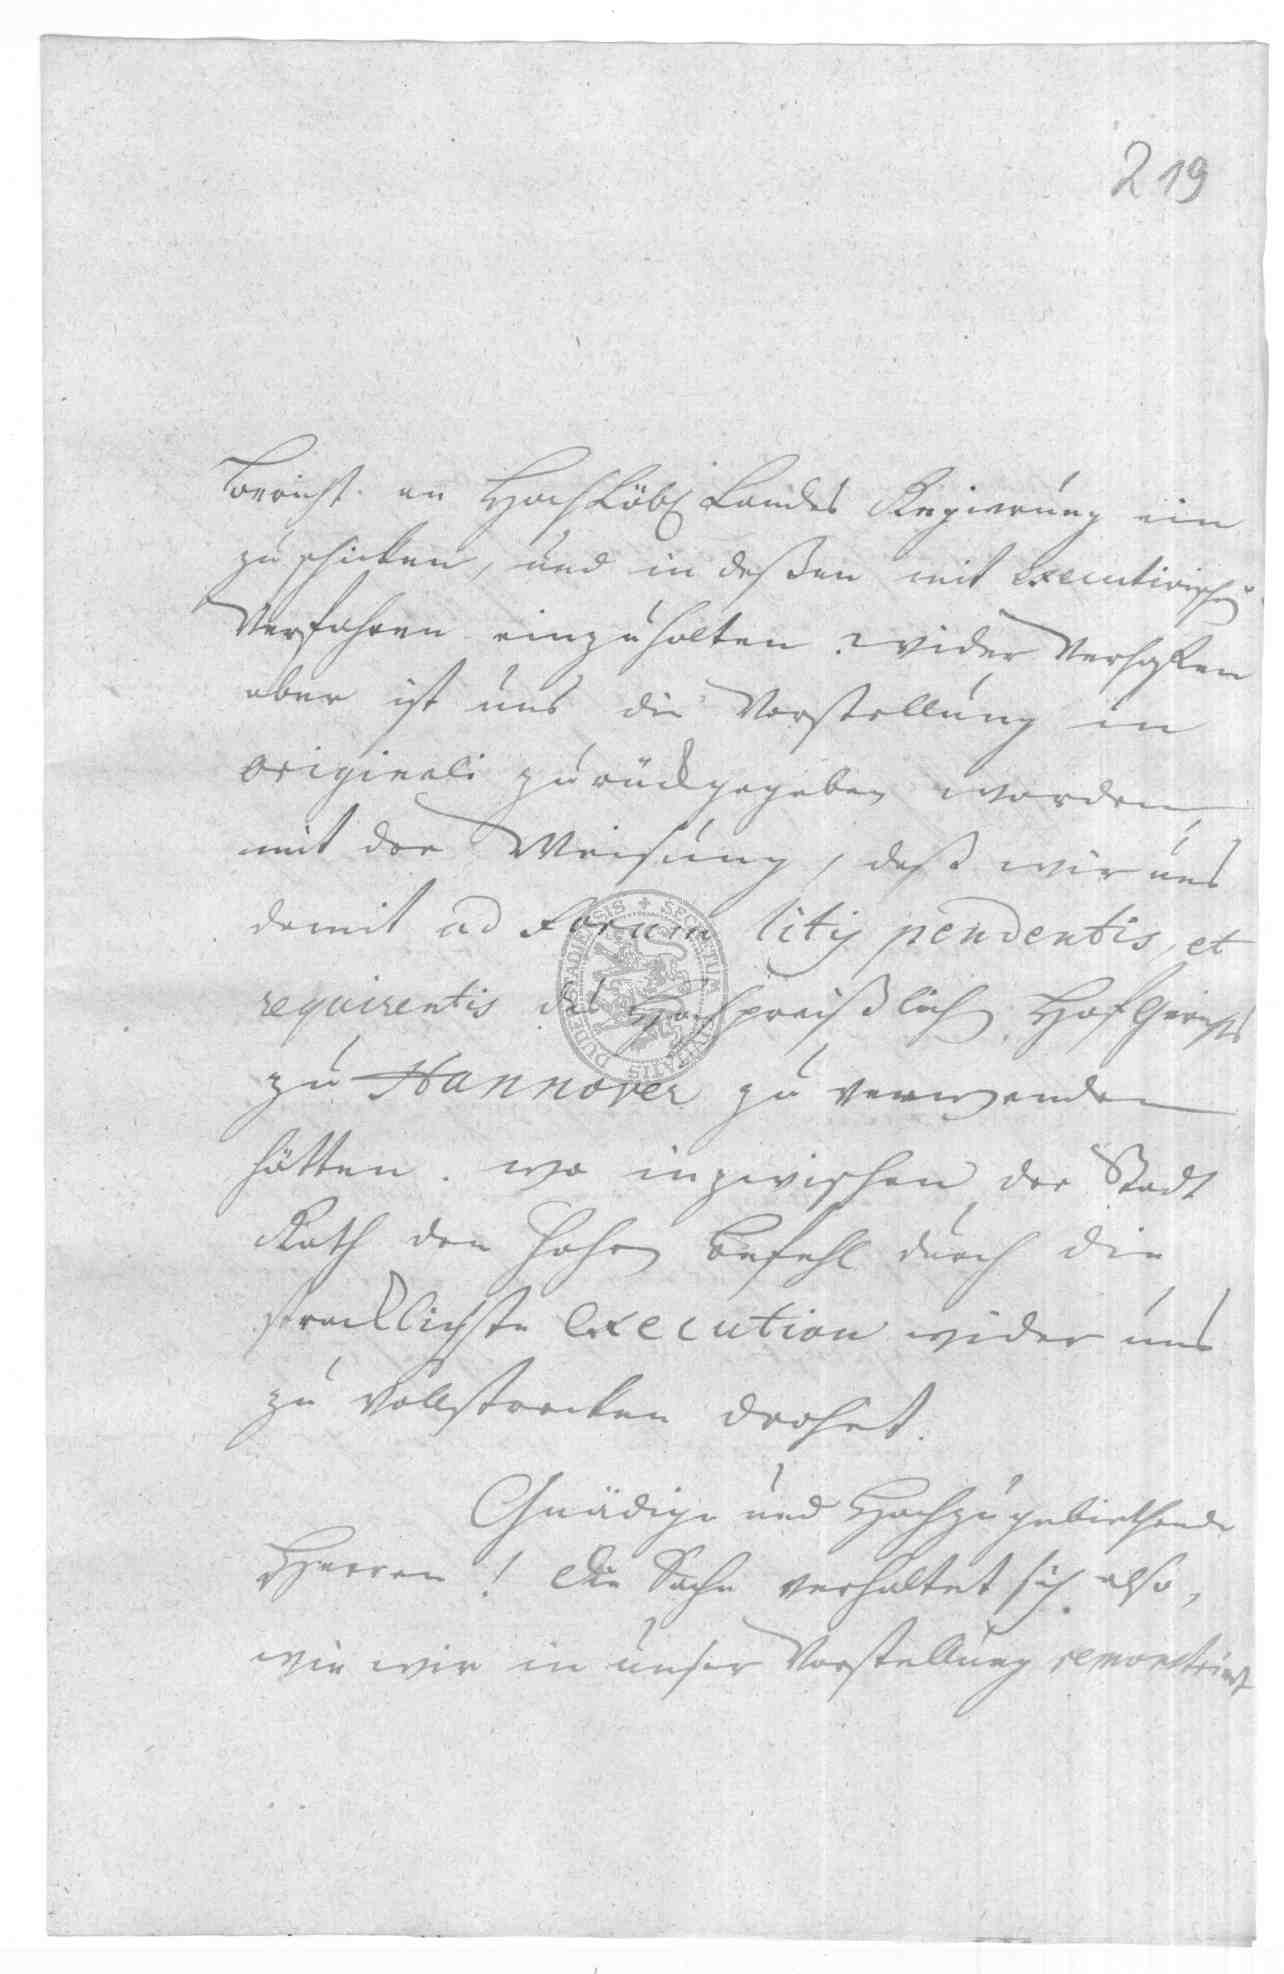 219
bericht an HochLöbl Landes Regierung ein
zu schicken, und in deßen mit executivischē
Verfahren einzuhalten. wider Verhoffen
aber ist uns die Vorstellung in
originali zurückgegeben worden
mit der Weisung, daß wir uns
damit ad Forum litis pendentis, et
requirentis des Hochpreißlich HofGerichts
zu Hannover zu verwenden
hätten. wo inzwischen der Stadt
Rath den hohen befehl durch die
schrecklichste execution wider uns
zu vollstrecken drohet.
Gnädige und Hochzugebiethende
Herren! die Sache verhaltet sich also,
wie wir in unser Vorstellung remonstrirt